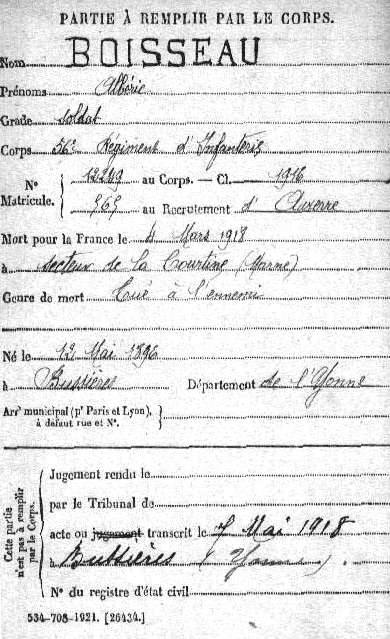 PARTIE À REMPLIR PAR LE CORPS.
Nom BOISSEAU
Prénoms Albéric
Grade soldat
Corps 56e Régiment d'Infanterie
No Matricule. 12249 au Corps. — Cl. 1916
565 au Recrutement d'Auxerre
Mort pour la France le 4 Mars 1918
à secteur de la Courtine (Marne)
Genre de mort Tué à l'ennemi
Né le 12 Mai 1896
à Bussières Département de l'Yonne
Arrt municipal (pr Paris et Lyon),
à défaut rue et No.
Cette partie
n'est pas à remplir
par le Corps.
Jugement rendu le
par le Tribunal de
acte ou jugement transcrit le 7 Mai 1918
à Bussières (Yonne).
No du registre d'état civil
534-708-1921. [26434.]